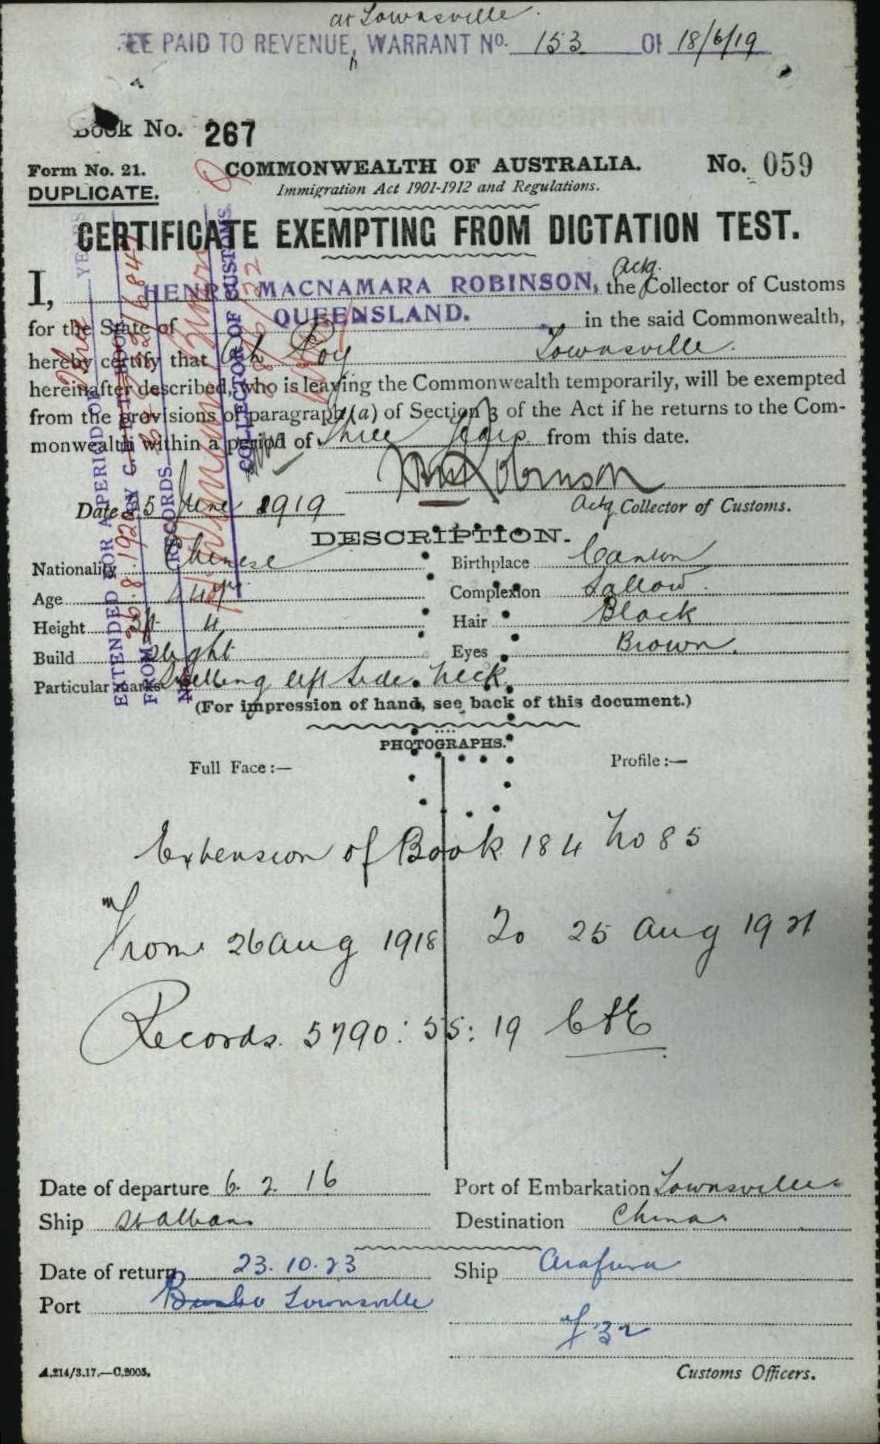 at Townsville.
FEE PAID TO REVENUE, WARRANT No. 153 OF 18/6/19
Book No. 267
Form No. 21. COMMONWEALTH OF AUSTRALIA. No. 059
DUPLICATE. Immigration Act 1901-1912 and Regulations.
CERTIFICATE EXEMPTING FROM DICTATION TEST.
I, HENRY MACNAMARA ROBINSON, the Actg. Collector of Customs
for the State of QUEENSLAND. in the said Commonwealth,
hereby certify that Ah Foy Townsville.
hereinafter described, who is leaving the Commonwealth temporarily, will be exempted
from the provisions of paragraph (a) of Section 3 of the Act if he returns to the Com-
monwealth within a period of Three Years from this date.
Date 5 June 1919
Actg Collector of Customs.
EXTENDED FOR A PERIOD OF Three YEARS
FROM 26.8.1921 BY
RECORDS.
COLLECTOR OF CUSTOMS.
DESCRIPTION.
Nationality Chinese Birthplace Canton
Age Complexion Sallow.
Height 5ft 4 Hair Black
Build Slight Eyes Brown.
Particular marks Swelling left side neck.
(For impression of hand, see back of this document.)
PHOTOGRAPHS.
Full Face:— Profile:—
Extension of Book 184 No 85
From 26 Aug 1918 To 25 Aug 1921
Records. 5790: 55: 19
Date of departure 6. 2. 16 Port of Embarkation Townsville
Ship St Albans Destination China
Date of return 23.10.23 Ship Arafura
Port Townsville
Customs Officers.
A.214/3.17.—C.2005.